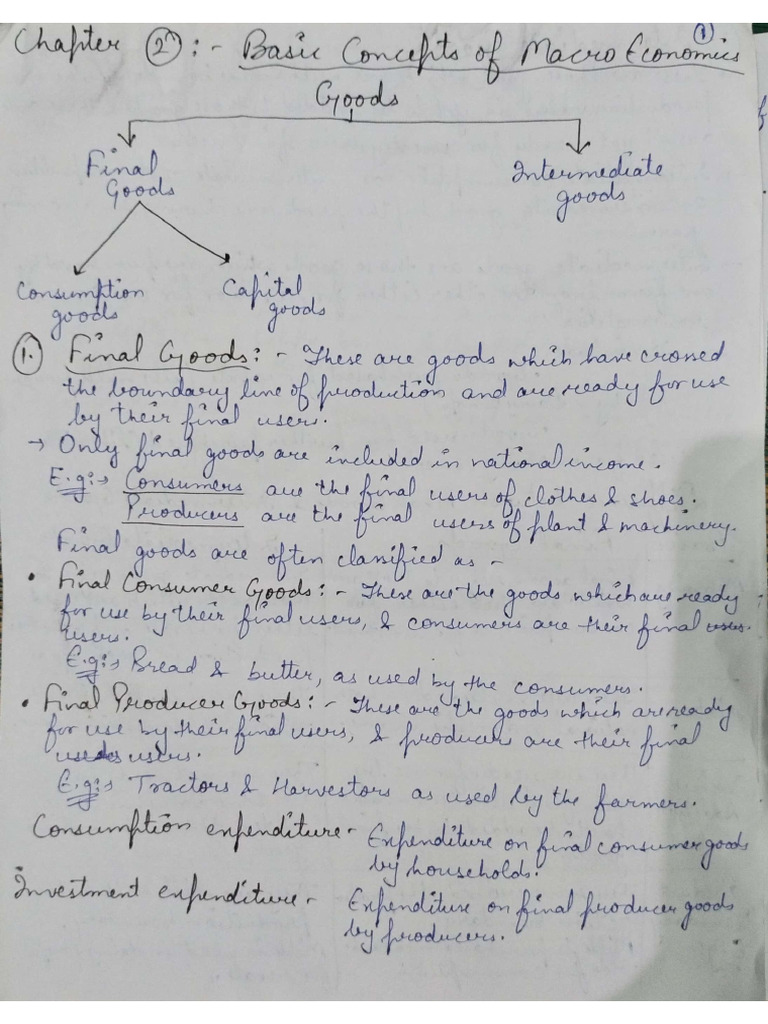 1
Chapter 2 :- Basic Concepts of Macro Economics
Goods
Final Intermediate
Goods goods
Consumption Capital
goods goods
1. Final Goods:- These are goods which have crossed
the boundary line of production and are ready for use
by their final users.
→ Only final goods are included in national income.
E.g:→ Consumers are the final users of clothes & shoes.
Producers are the final users of plant & machinery.
Final goods are often classified as -
• Final Consumer Goods:- These are the goods which are ready
for use by their final users, & consumers are their final
users.
E.g:→ Bread & butter, as used by the consumers.
• Final Producer Goods:- These are the goods which are ready
for use by their final users, & producers are their final
users.
E.g:→ Tractors & Harvestors as used by the farmers.
Consumption expenditure - Expenditure on final consumer goods
by households.
Investment expenditure - Expenditure on final producer goods
by producers.